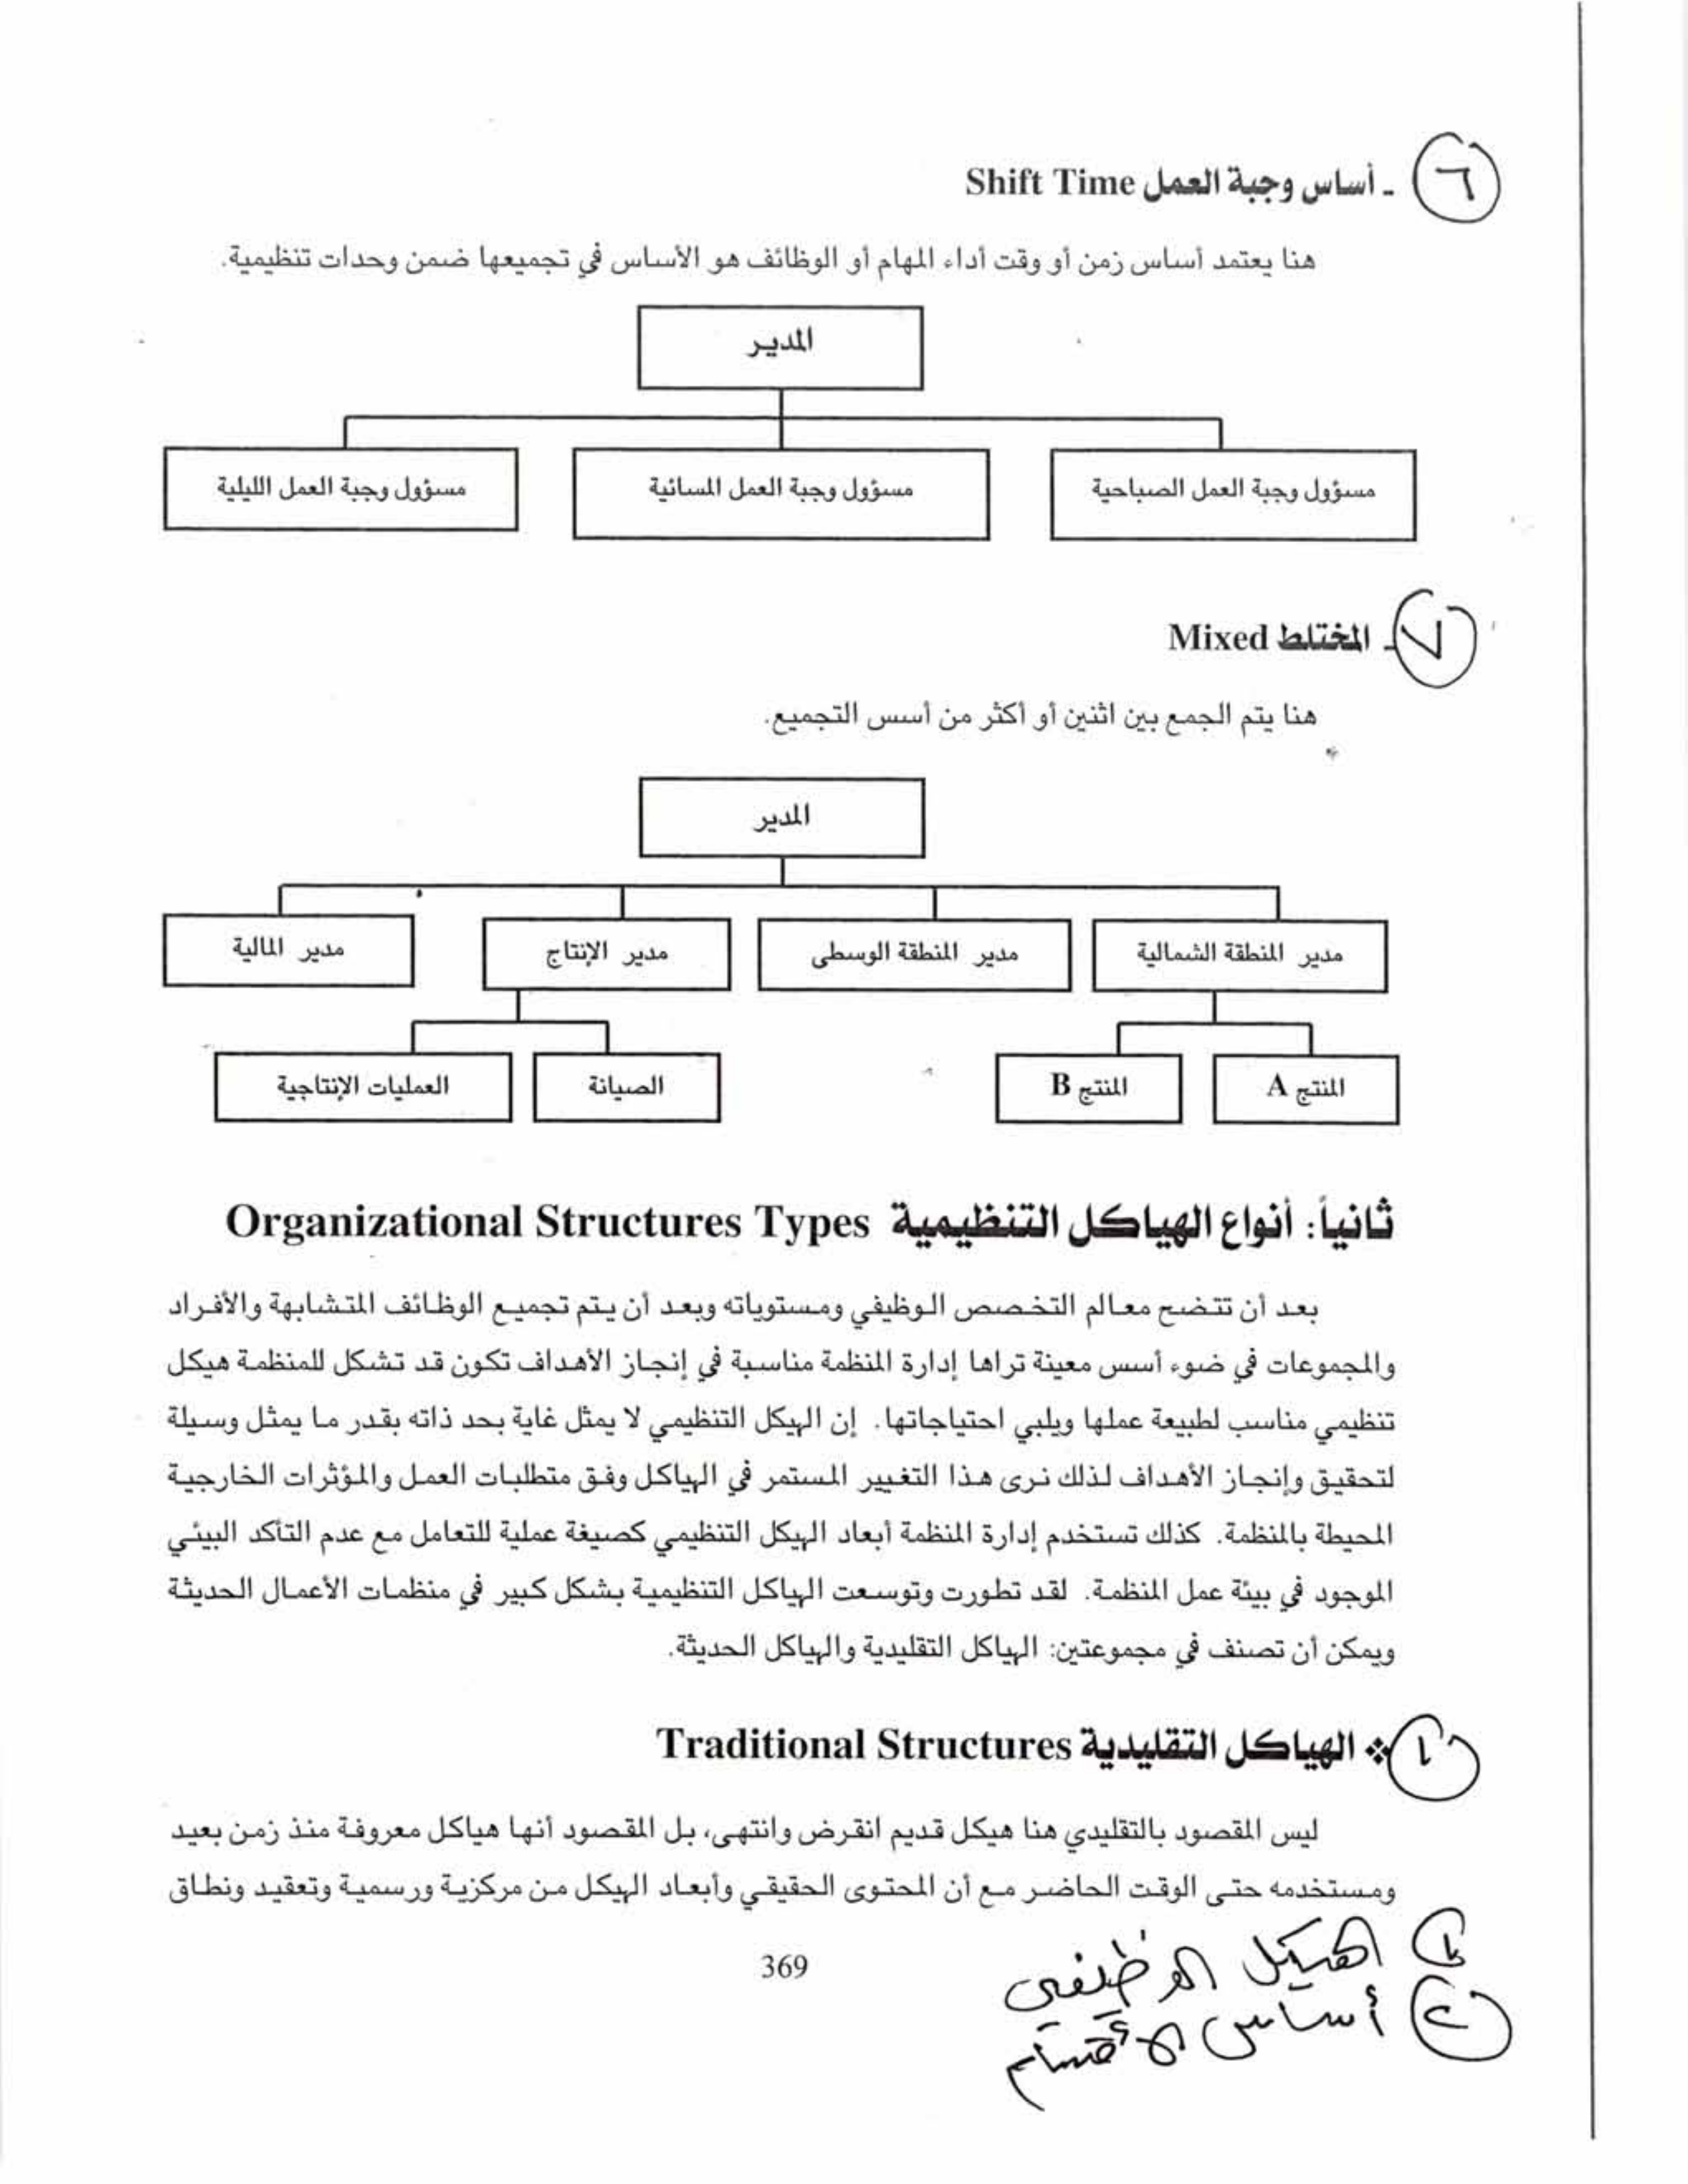 ٦ - أساس وجبة العمل Shift Time
هنا يعتمد أساس زمن أو وقت أداء المهام أو الوظائف هو الأساس في تجميعها ضمن وحدات تنظيمية.
المدير
مسؤول وجبة العمل الصباحية
مسؤول وجبة العمل المسائية
مسؤول وجبة العمل الليلية
٧ - المختلط Mixed
هنا يتم الجمع بين اثنين أو أكثر من أسس التجميع.
المدير
مدير المنطقة الشمالية
مدير المنطقة الوسطى
مدير الإنتاج
مدير المالية
المنتج A
المنتج B
الصيانة
العمليات الإنتاجية
ثانياً: أنواع الهياكل التنظيمية Organizational Structures Types
بعد أن تتضح معالم التخصص الوظيفي ومستوياته وبعد أن يتم تجميع الوظائف المتشابهة والأفراد
والمجموعات في ضوء أسس معينة تراها إدارة المنظمة مناسبة في إنجاز الأهداف تكون قد تشكل للمنظمة هيكل
تنظيمي مناسب لطبيعة عملها ويلبي احتياجاتها. إن الهيكل التنظيمي لا يمثل غاية بحد ذاته بقدر ما يمثل وسيلة
لتحقيق وإنجاز الأهداف لذلك نرى هذا التغيير المستمر في الهياكل وفق متطلبات العمل والمؤثرات الخارجية
المحيطة بالمنظمة. كذلك تستخدم إدارة المنظمة أبعاد الهيكل التنظيمي كصيغة عملية للتعامل مع عدم التأكد البيئي
الموجود في بيئة عمل المنظمة. لقد تطورت وتوسعت الهياكل التنظيمية بشكل كبير في منظمات الأعمال الحديثة
ويمكن أن تصنف في مجموعتين: الهياكل التقليدية والهياكل الحديثة.
١ ❖ الهياكل التقليدية Traditional Structures
ليس المقصود بالتقليدي هنا هيكل قديم انقرض وانتهى، بل المقصود أنها هياكل معروفة منذ زمن بعيد
ومستخدمه حتى الوقت الحاضر مع أن المحتوى الحقيقي وأبعاد الهيكل من مركزية ورسمية وتعقيد ونطاق
١ الهيكل الوظيفي
٢ أساس الأقسام
369